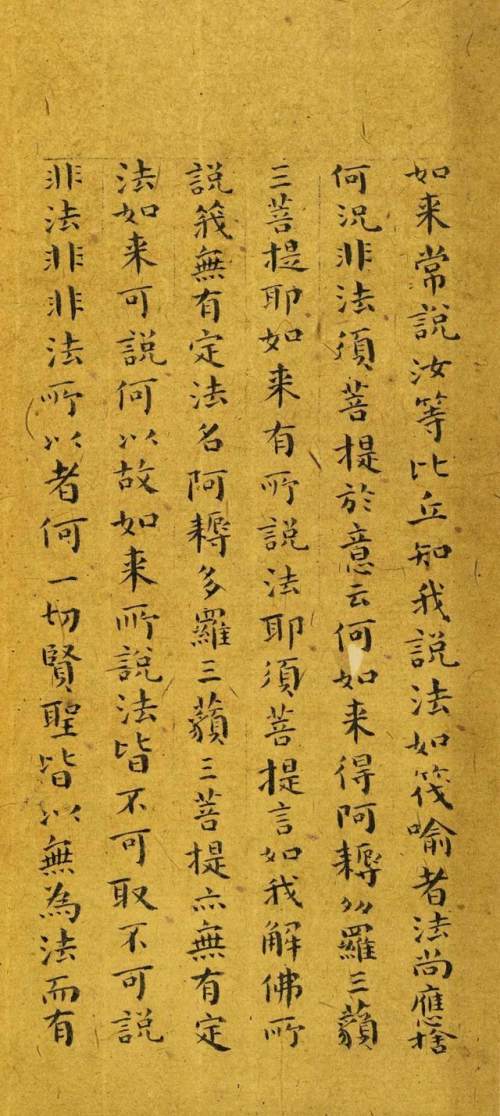 如来常說汝等比丘知我說法如筏喻者法尚應捨
何況非法須菩提於意云何如来得阿耨多羅三藐
三菩提耶如来有所說法耶須菩提言如我解佛所
說義無有定法名阿耨多羅三藐三菩提亦無有定
法如来可說何以故如来所說法皆不可取不可說
非法非非法所以者何一切賢聖皆以無為法而有